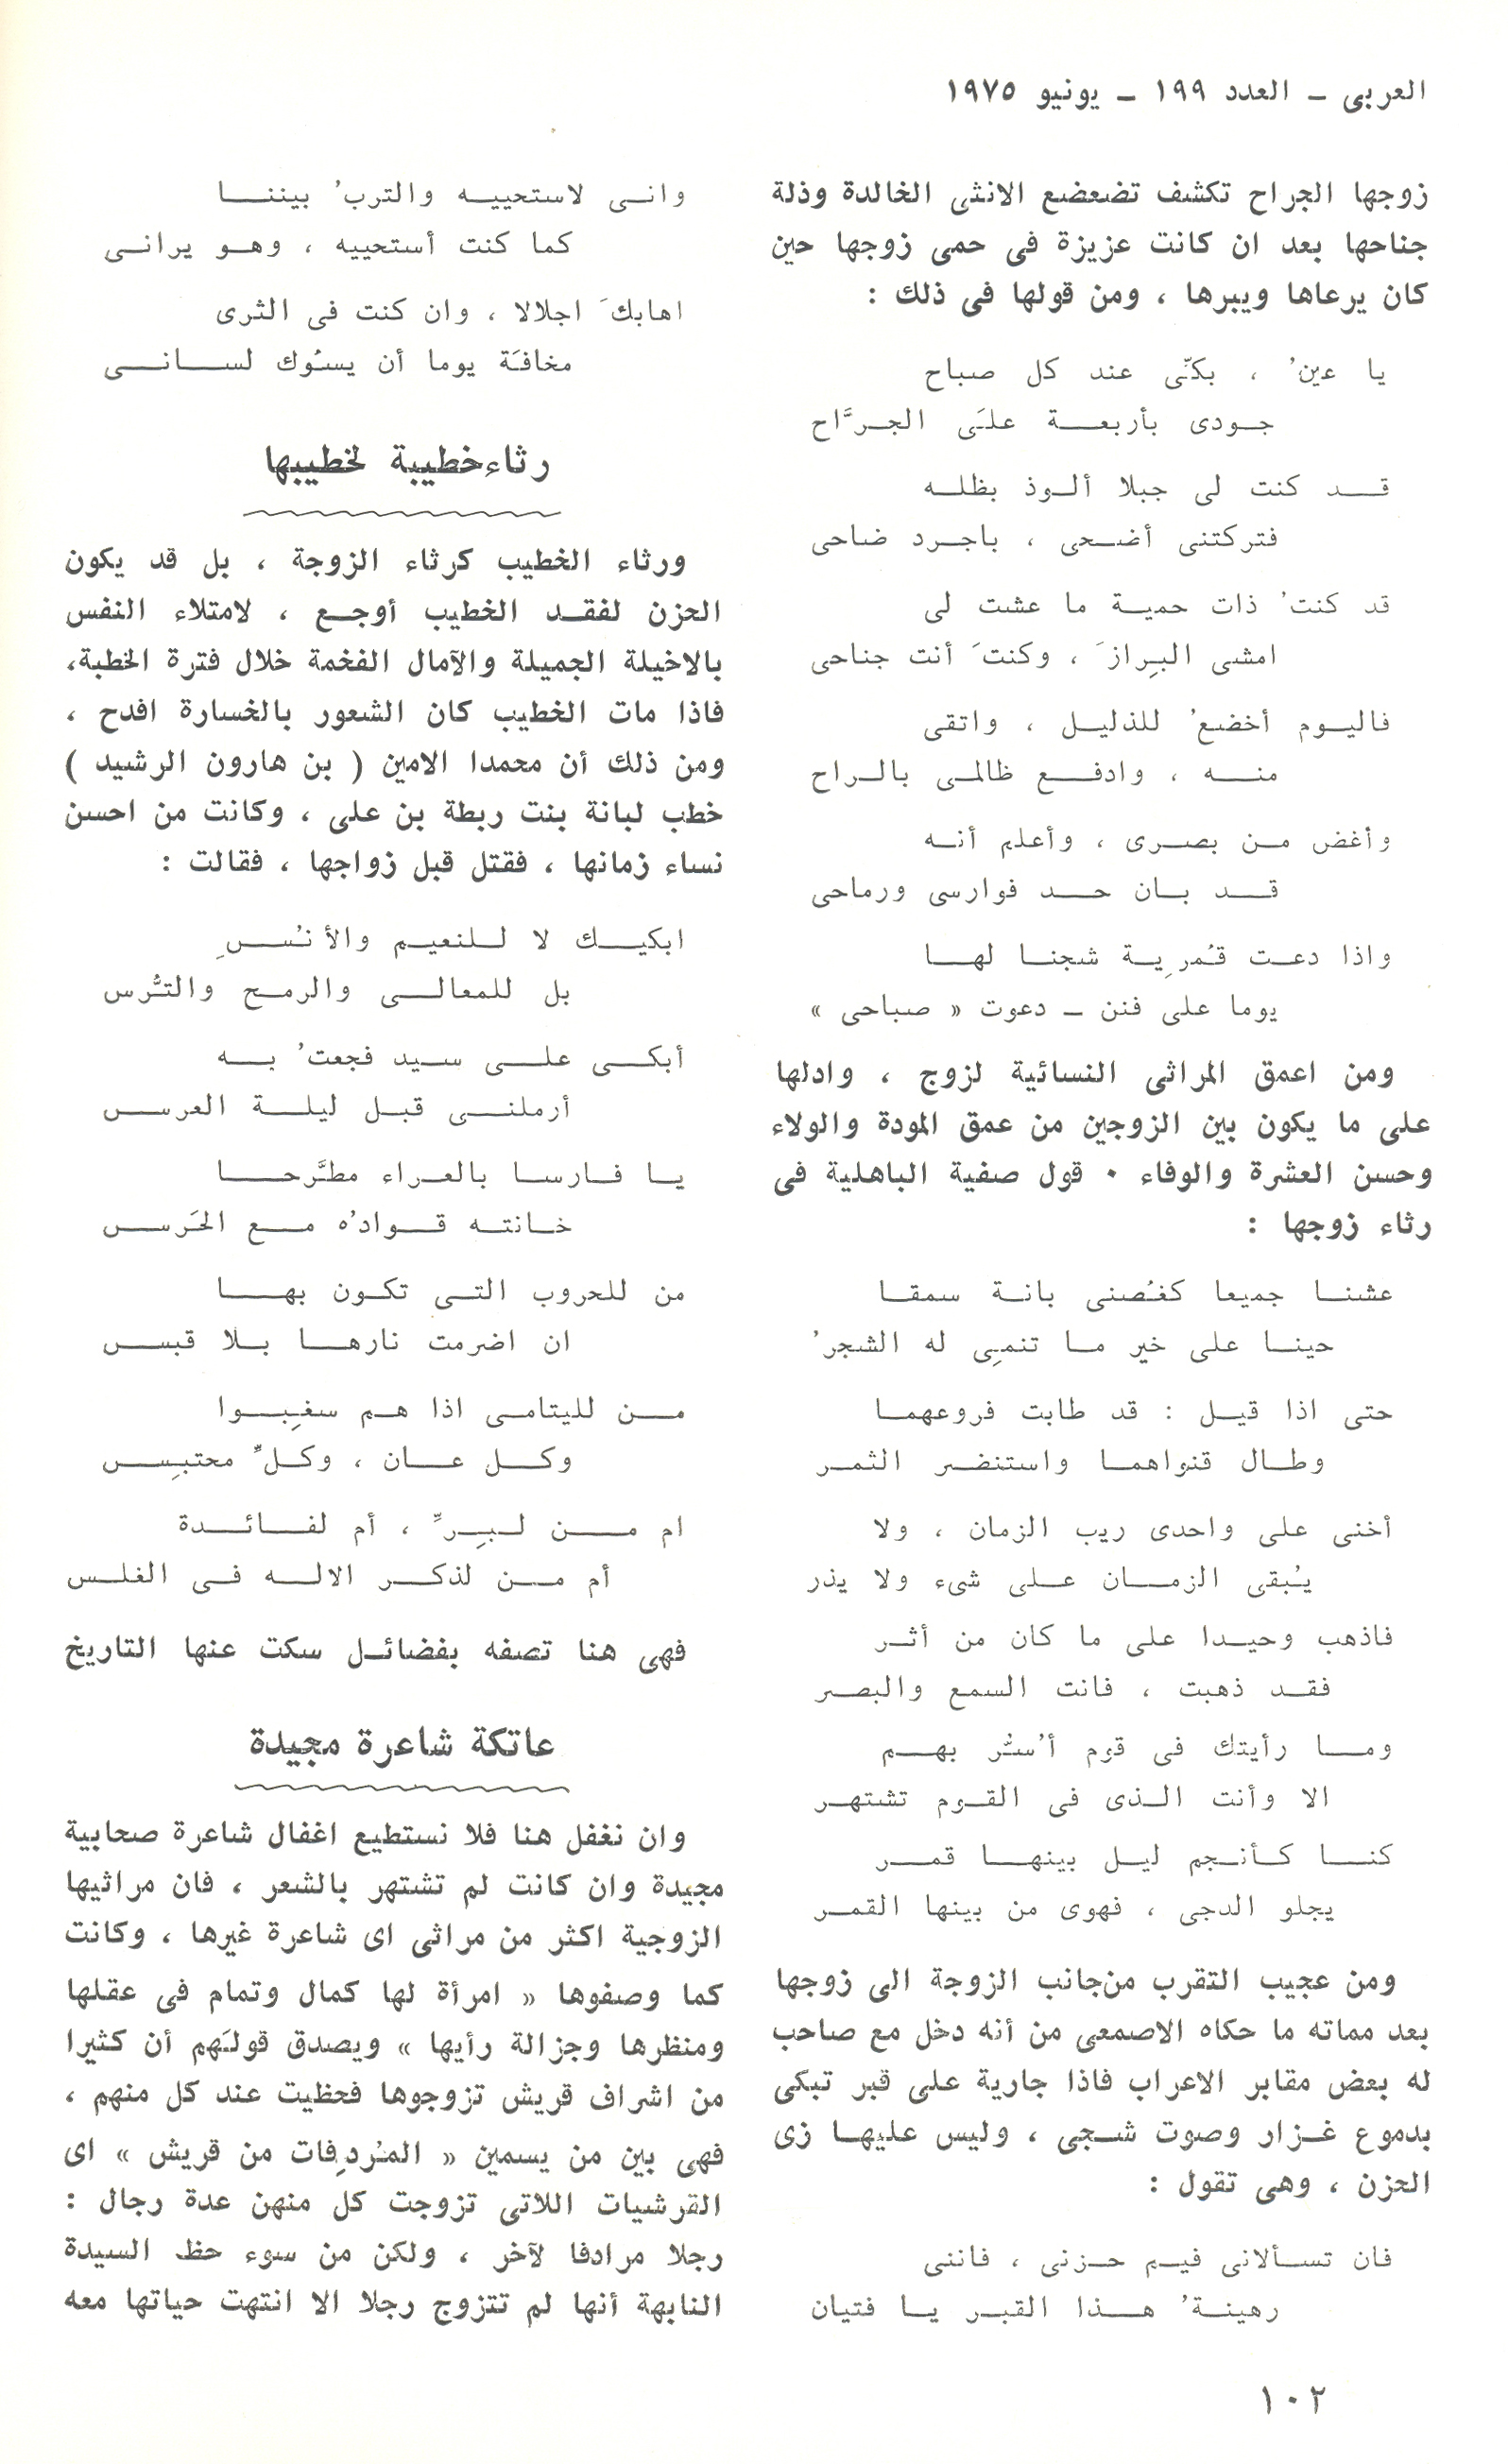 العربى ــ العدد ١٩٩ ــ يونيو ١٩٧٥
زوجها الجراح تكشف تضعضع الانثى الخالدة وذلة
جناحها بعد ان كانت عزيزة فى حمى زوجها حين
كان يرعاها ويبرها ، ومن قولها فى ذلك :
يا عينُ ، بكّى عند كل صباح
جـودى بأربعــة علَى الجـرَّاح
قــد كنت لى جبلا ألـوذ بظلـه
فتركتنى أضـحى ، باجرد ضاحى
قد كنتُ ذات حميـة ما عشت لى
امشى البِرازَ ، وكنتَ أنت جناحى
فاليـوم أخضعُ للذليـل ، واتقى
منــه ، وادفــع ظالمى بالـراح
وأغض مـن بصـرى ، وأعلم أنـه
قــد بـان حــد فوارسى ورماحى
واذا دعـت قُمرِيـة شجنـا لهـا
يوما على فنن ــ دعوت « صباحى »
ومن اعمق المراثى النسائية لزوج ، وادلها
على ما يكون بين الزوجين من عمق المودة والولاء
وحسن العشرة والوفاء ٠ قول صفية الباهلية فى
رثاء زوجها :
عشنـا جميعا كغُصنى بانـة سمقـا
حينـا على خير مـا تنمِى له الشجرُ
حتى اذا قيـل : قد طابت فروعهمـا
وطـال قنواهمـا واستنضـر الثمـر
أخنى على واحدى ريب الزمان ، ولا
يُبقى الزمـان علـى شىء ولا يذر
فاذهب وحيـدا على ما كان من أثـر
فقـد ذهبت ، فانت السمع والبصـر
ومــا رأيتك فى قوم أُسَُر بهـم
الا وأنت الـذى فى القـوم تشتهـر
كنـا كـأنـجم ليـل بينهـا قمـر
يجلو الدجى ، فهوى من بينها القمـر
ومن عجيب التقرب من جانب الزوجة الى زوجها
بعد مماته ما حكاه الاصمعى من أنه دخل مع صاحب
له بعض مقابر الاعراب فاذا جارية على قبر تبكى
بدموع غـزار وصوت شـجى ، وليس عليهـا زى
الحزن ، وهى تقول :
فان تسـألانى فيـم حـزنى ، فاننى
رهينـةُ هــذا القبـر يـا فتيان
وانـى لاستحييـه والتربُ بيننـا
كما كنت أستحييه ، وهـو يرانـى
اهابكَ اجلالا ، وان كنت فى الثرى
مخافَة يوما أن يسوُك لســانـى
رثاء خطيبة لخطيبها
ورثاء الخطيب كرثاء الزوجة ، بل قد يكون
الحزن لفقـد الخطيب أوجـع ، لامتلاء النفس
بالاخيلة الجميلة والآمال الفخمة خلال فترة الخطبة،
فاذا مات الخطيب كان الشعور بالخسارة افدح ،
ومن ذلك أن محمدا الامين ( بن هارون الرشيد )
خطب لبانة بنت ربطة بن على ، وكانت من احسن
نساء زمانها ، فقتل قبل زواجها ، فقالت :
ابكيــك لا للنعيـم والأنُـسِ
بل للمعالـى والرمـح والتُّرس
أبكـى علـى سـيد فجعتُ بـه
أرملنـى قبـل ليلـة العرس
يـا فـارسـا بالعـراء مطَّرحــا
خـانتـه قـوادُه مـع الحَرس
من للحروب التـى تكـون بهـا
ان اضرمت نارهـا بـلا قبس
مـن لليتامـى اذا هـم سغِبـوا
وكـل عـان ، وكـلّ محتبِس
ام مــن لـبِـرّ ، أم لفـائـدة
أم مـن لذكـر الالـه فـى الغلس
فهى هنا تصفه بفضائـل سكت عنها التاريخ
عاتكة شاعرة مجيدة
وان نغفل هنا فلا نستطيع اغفال شاعرة صحابية
مجيدة وان كانت لم تشتهر بالشعر ، فان مراثيها
الزوجية اكثر من مراثى اى شاعرة غيرها ، وكانت
كما وصفوها « امرأة لها كمال وتمام فى عقلها
ومنظرها وجزالة رأيها » ويصدق قولَهم أن كثيرا
من اشراف قريش تزوجوها فحظيت عند كل منهم ،
فهى بين من يسمين « المُردِفات من قريش » اى
القرشيات اللاتى تزوجت كل منهن عدة رجال :
رجلا مرادفا لآخر ، ولكن من سوء حظ السيدة
النابهة أنها لم تتزوج رجلا الا انتهت حياتها معه
١٠٢